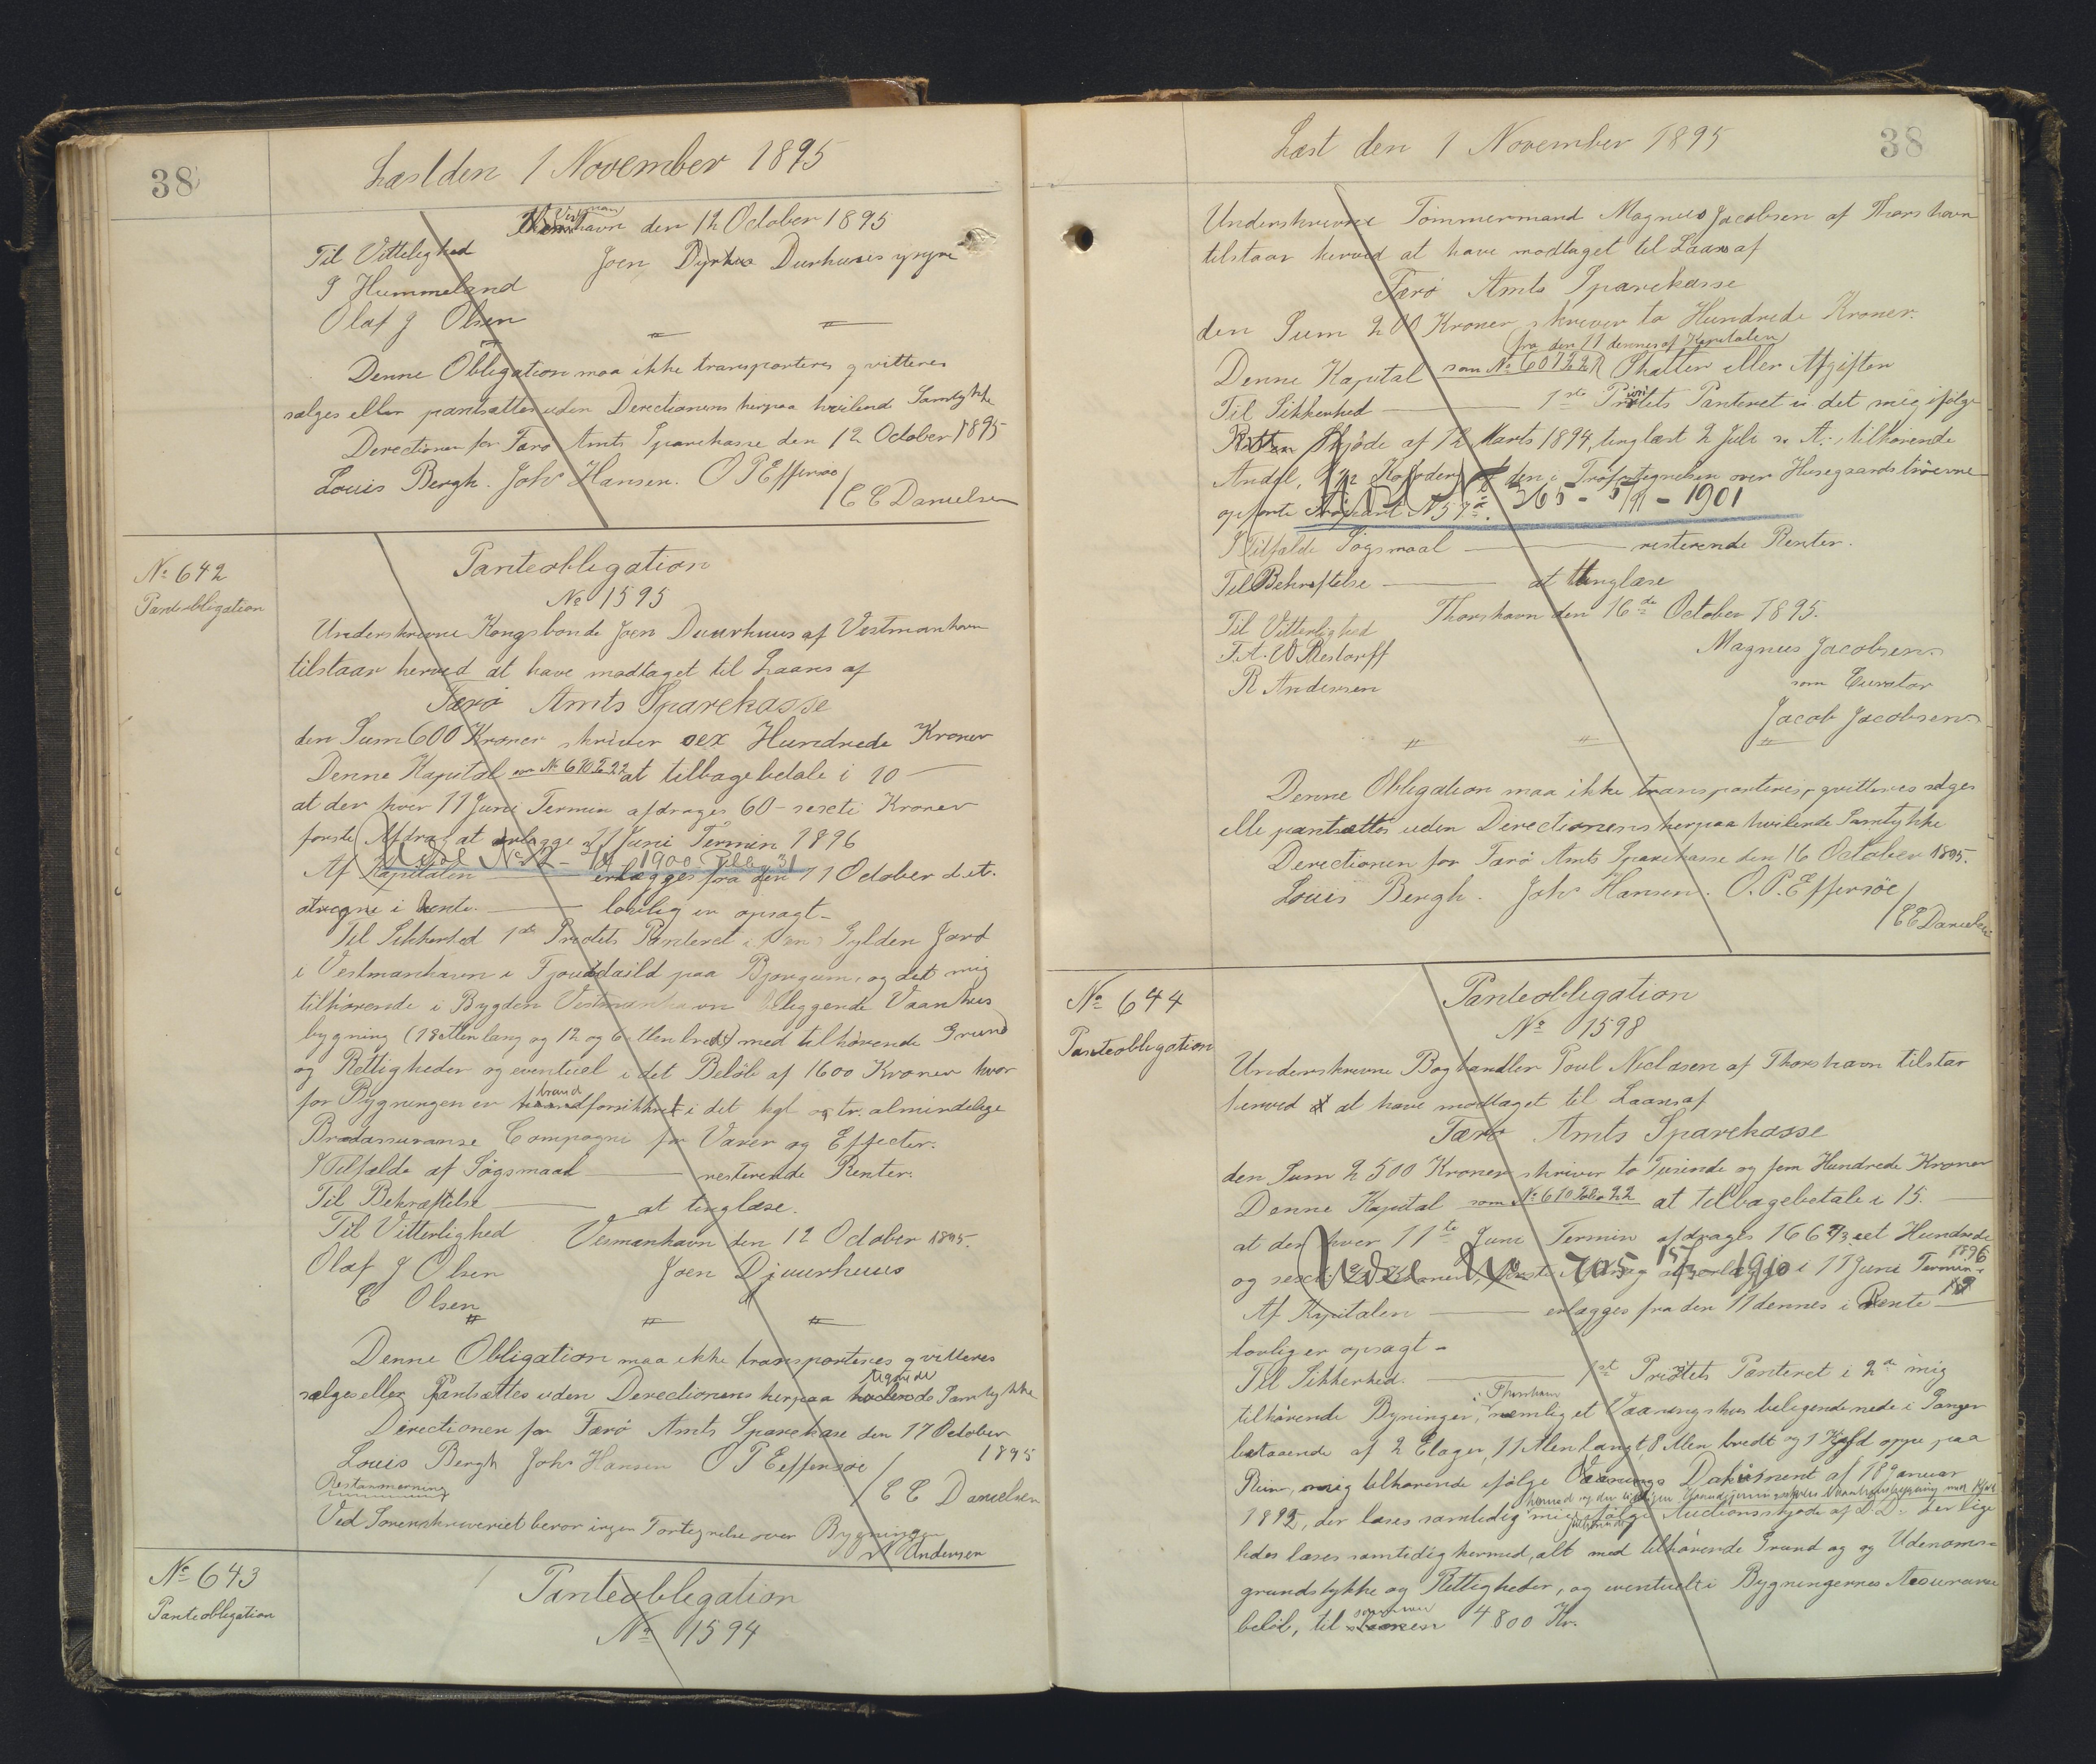 38
Læst den 1 November 1895
Vestmanhavn den 12 October 1895
Til Vittelighed
Joen Durhuus yngre
J Hummeland
Olaf J Olsen
Denne Obligation maa ikke transporteres qvitteres
sælges eller pantsættes uden Derectionens herpaa hvilend Samtykke
Derectionen for Færø Amts Sparekasse den 12 October 1895
Louis Bergh. Johs Hansen. O P Effersøe
/ C C Danielsen
No 642
Panteobligation
Panteobligation
No 1595
Underskrevne Kongsbonde Joen Duurhuus af Vestmanhavn
tilstaar herved at have modtaget til Laans af
Færø Amts Sparekasse
den Sum 600 Kroner skriver sex Hundrede Kroner
Denne Kapital som No 610 Fol 22 at tilbagebetale i 10
at der hver 11 Juni Termin afdrages 60 - sexti Kroner
første Afdrag at erlægge 11 Juni Termin 1896
1900 Fol 31
Af Kapitalen erlægges fra den 11 October d.et.
atregne i Rente. lovlig er opsagt -
Til Sikkerhed 1ste Priotets Panteret i Gylden Jord
i Vestmanhavn i paa Bjorgum, og det mig
tilhørende i Bygden Vestmanhavn beliggende Vaanhus
bygning (18 Allen lang og 12 og 6 Allen bredt) med tilhørende Grund
og Rettigheder og eventuel i det Beløb af 1600 Kroner hvor
for Bygningen er brandforsikkret i det kgl oktr. almindelige
Bradassuranse Compagni for Varer og Effecter.
I Tilfælde af Søgsmaal resterende Renter.
Til Bekræftelse at tinglæse.
Til Vitterlighed Vesmanhavn den 12 October 1895.
Olaf J Olsen Joen Djuurhuus
C Olsen
Denne Obligation maa ikke transporteres qvitteres
sælges eller pantsættes uden Derectionens herpaa tegnede Samtykke
Directionen for Færø Amts Sparekasse den 17 October
1895
Louis Bergh Johs Hansen O P Effersøe
/ C C Danielsen
Restanmerning
Ved Sorenskriveriet beror ingen Fortegnelse over Bygningen
Andersen
No 643
Panteobligation
Panteobligation
No 1594
Læst den 1 November 1895
38
Underskrevne Tømmermand Magnus Jacobsen af Thorshavn
tilstaar herved at have modtaget til Laans af
Færø Amts Sparekasse
den Sum 200 Kroner skriver to Hundrede Kroner.
fra den 11 dennes af Kapitalen
Denne Kapital som No 607 Skatter eller Afgifter
Til Sikkerhed 1ste Prioritets Panteret i det mig ifølge
Skjøde af 12 Marts 1894, tinglæst 2 Juli s. A., tilhørende
Andel, den i Fortegnelsen over Husegaardstørvene
opførte No 57a. 265 - 5/11 - 1901
I Tilfælde Søgsmaal resterende Renter.
Til Bekræftelse at tinglæse
Thorshavn den 16de October 1895.
Til Vitterlighed
F. A. W Restorff Magnus Jacobsen
R Andersen som Curator
Jacob Jacobsen
Denne Obligation maa ikke transporteres, qvitteres sælges
elle pantsættes uden Directionens herpaa hvilende Samtykke
Derectionen for Færø Amts Sparekasse den 16 October 1895.
Louis Bergh. Johs Hansen. O. P. Effersøe
/ C C Danielsen
No 644
Panteobligation
Panteobligation
No 1598
Underskrevne Boghandler Poul Niclasen af Thorshavn tilstar
herved at have modtaget til Laans af
Færø Amts Sparekasse
den Sum 2500 Kroner skriver to Tusinde og fem Hundrede Kroner
Denne Kapital som No 610 Folio 22 at tilbagebetale i 15.
at der hver 11te Juni Termin afdrages 166 2/3 eet Hundrede
og sexti Kroner, første Afdrag at erlægge i 11 Juni Termin 1896
Udsl No 705 15/3 1910
Af Kapitalen erlægges fra den 11 dennes i Rente
lovlig er opsagt -
Til Sikkerhed. 1st Priotets Panteret i 2de mig
tilhørende Byninger, i Thorshavn nemlig et Vaaningshus beligende nede i Panger
bestaaende af 2 Etager, 11 Alen langt, 8 Alen bredt og 1 oppe paa
Rein, mig tilhørende ifølge Dokument af 18 Januar
1892, der læses samtidig ifølge Auctionsskjøde af D.D. der lige
ledes læses samtidig hermed, alt med tilhørende Grund og og Udenoms-
grundstykke og Rettigheder, og eventuelt i Bygningernes Assurance
beløb, til sammen 4800 Kr.